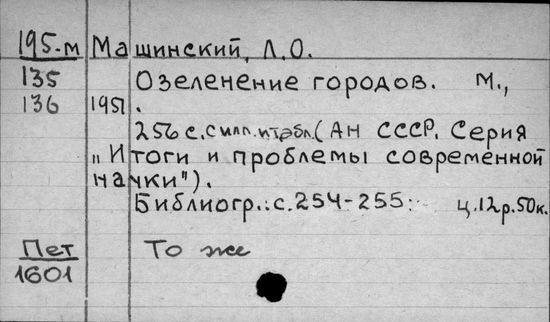 195-м Машинский, Л.О.
135 Озеленение городов. М.,
136 1951.
256 с. с илл. и табл. (АН СССР. Серия
"Итоги и проблемы современной
науки").
Библиогр.: с. 254-255. ц. 12 р. 50 к.
Пет То же
1601